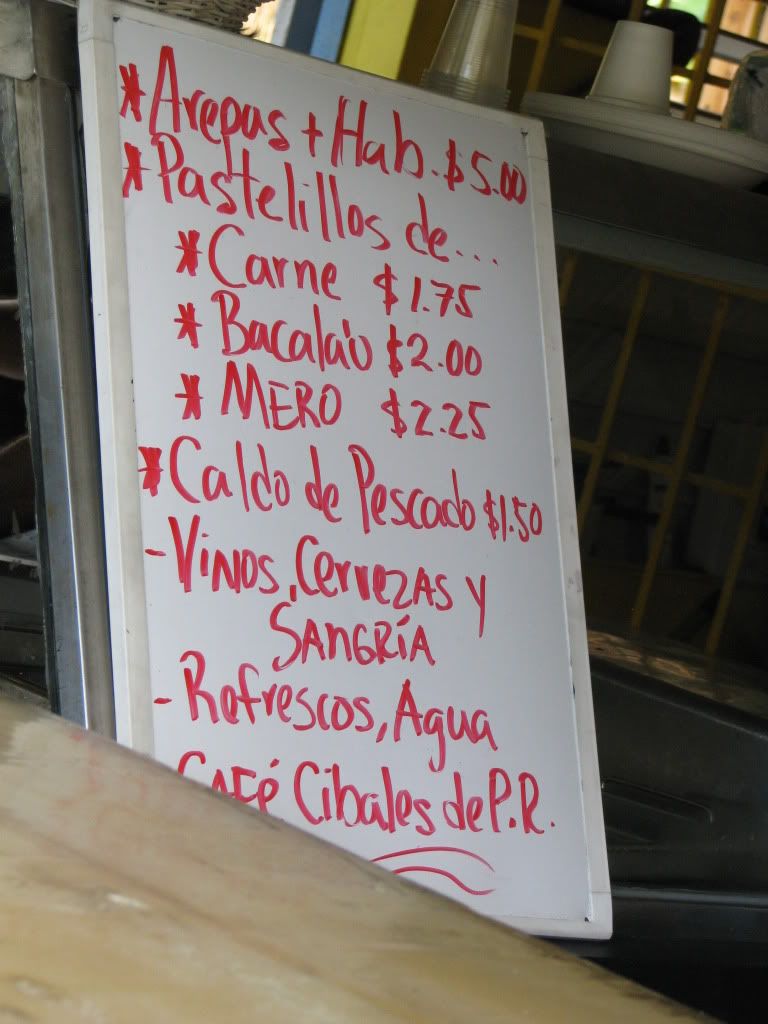 *Arepas + Hab. $5.00
*Pastelillos de...
*Carne $1.75
*Bacala'o $2.00
*MERO $2.25
*Caldo de Pescado $1.50
-Vinos, Cervezas y
SANGRÍA
-Refrescos, Agua
CAFÉ Cibales de P.R.